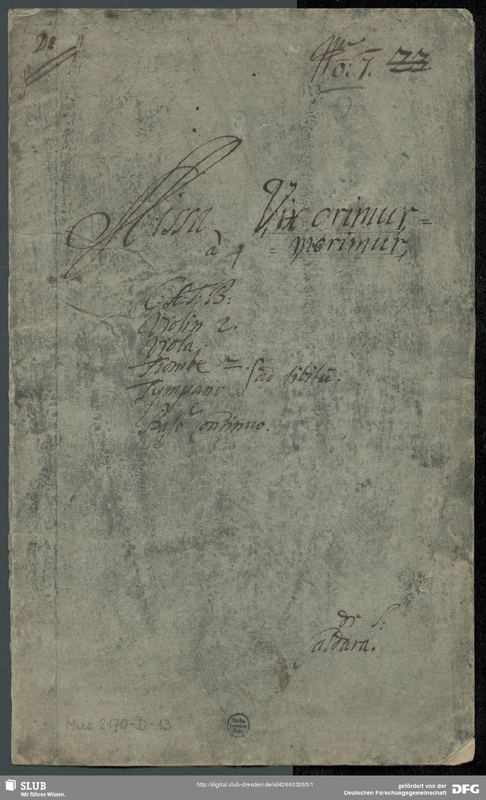 No: 7. 23.
Missa Vix orimur,
à 4 morimur,
C. A. T. B:
Violin 2.
Viola.
Trombe 2. ad libitũ.
Tympano
e
Basso Continuo.
dr S:
Caldara.
Mus. 2170-D-13
SLUB
Wir führen Wissen.
http://digital.slub-dresden.de/id426603265/1
gefördert von der
Deutschen Forschungsgemeinschaft
DFG